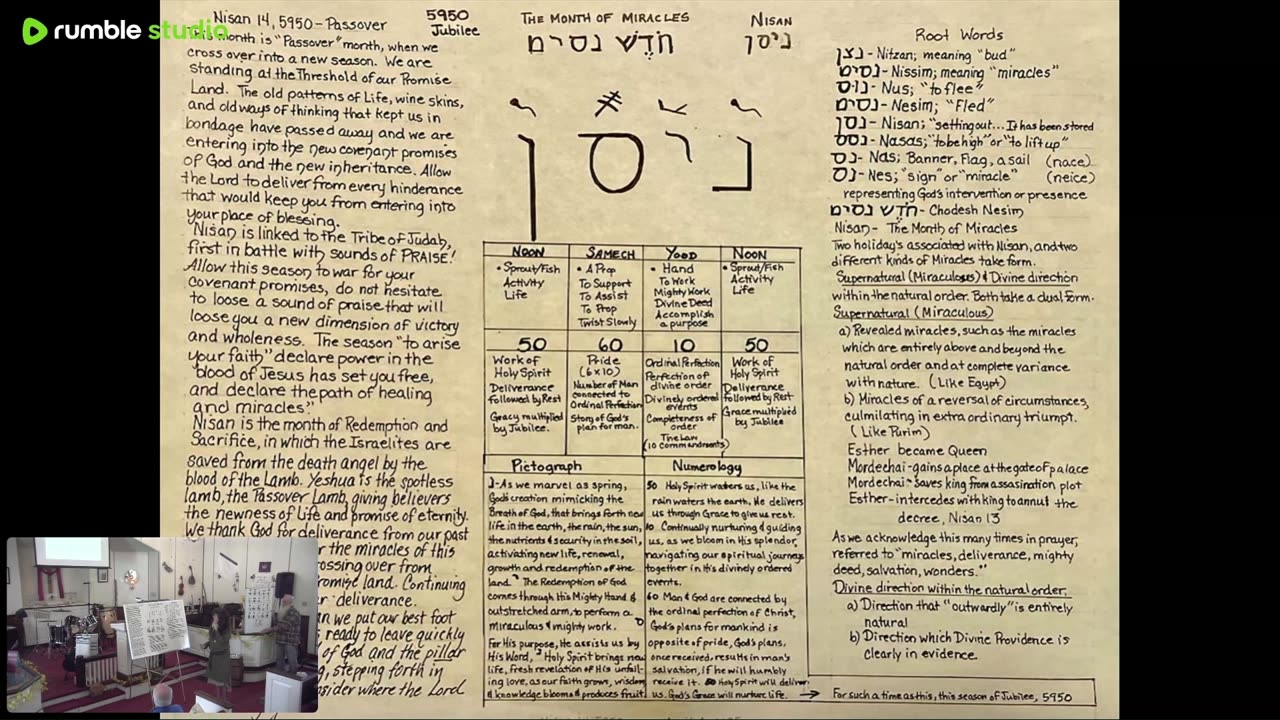 rumble studio
Nisan 14, 5950 – Passover
5950
Jubilee
month is "Passover" month, when we
cross over into a new season. We are
standing at the Threshold of our Promise
Land. The old patterns of Life, wine skins,
and old ways of thinking that kept us in
bondage have passed away and we are
entering into the new covenant promises
of God and the new inheritance. Allow
the Lord to deliver from every hinderance
that would keep you from entering into
your place of blessing.
Nisan is linked to the Tribe of Judah,
first in battle with sounds of PRAISE!
Allow this season to war for your
covenant promises, do not hesitate
to loose a sound of praise that will
loose you a new dimension of victory
and wholeness. The season "to arise
your faith" declare power in the
"blood of Jesus has set you free,
and declare the path of healing
and miracles"
Nisan is the month of Redemption and
Sacrifice, in which the Israelites are
saved from the death angel by the
blood of the Lamb. Yeshua is the spotless
lamb, the Passover Lamb, giving believers
the newness of Life and promise of eternity.
We thank God for deliverance from our past
the miracles of this
crossing over from
promise land. Continuing
deliverance.
we put our best foot
ready to leave quickly
of God and the pillar
, stepping forth in
consider where the Lord
THE MONTH OF MIRACLES
חֹדֶשׁ נסים
NISAN
ניסן
ניסן
NOON
SAMECH
YOOD
NOON
• Sprout/Fish
Activity
Life
• A Prop
To Support
To Assist
To Prop
Twist Slowly
• Hand
To Work
Mighty Work
Divine Deed
Accomplish
a purpose
• Sprout/Fish
Activity
Life
50
60
10
50
Work of
Holy Spirit
Deliverance
followed by Rest
Gracy multiplied
by Jubilee.
Pride
(6x10)
Number of Man
connected to
Ordinal Perfection
Story of God's
plan for man.
Ordinal Perfection
Perfection of
divine order
Divinely ordered
events
Completeness of
order
The Law
(10 Commandments)
Work of
Holy Spirit
Deliverance
followed by Rest
Grace multiplied
by Jubilee
Pictograph
As we marvel as spring,
God's creation mimicking the
Breath of God, that brings forth new
life in the earth, the rain, the sun,
the nutrients & security in the soil,
activating new life, renewal,
growth and redemption of the
land. The Redemption of God
comes through His Mighty Hand &
outstretched arm, to perform a
miraculous & mighty work.
For His purpose, He assists us by
His Word, Holy Spirit brings new
life, fresh revelation of His unfail-
ing love, as our faith grows, wisdom
& knowledge blooms & produces fruit.
Numerology
50 Holy Spirit waters us, like the
rain waters the earth. He delivers
us through Grace to give us rest.
10 Continually nurturing & guiding
us, as we bloom in His splendor,
navigating our spiritual journeys
together in His divinely ordered
events.
60 Man & God are connected by
the ordinal perfection of Christ,
God's plans for mankind is
opposite of pride, God's plans,
once received, results in man's
salvation, if he will humbly
receive it. 50 Holy Spirit will deliver
us. God's Grace will nurture life.
Root Words
נצן - Nitzan; meaning "bud"
נסים - Nissim; meaning "miracles"
נוס - Nus; "to flee"
נסים - Nesim; "Fled"
נסן - Nisan; "setting out... It has been stored
נסס - Nasas; "to be high" or "to lift up"
נס - Nas; Banner, Flag, a sail (nace)
נס - Nes; "sign" or "miracle" (neice)
representing God's intervention or presence
חֹדֶשׁ נסים - Chodesh Nesim
Nisan - The Month of Miracles
Two holiday's associated with Nisan, and two
different kinds of Miracles take form.
Supernatural (Miraculous) & Divine direction
within the natural order. Both take a dual form.
Supernatural (Miraculous)
a) Revealed miracles, such as the miracles
which are entirely above and beyond the
natural order and at complete variance
with nature. (Like Egypt)
b) Miracles of a reversal of circumstances,
culmilating in extra ordinary triumpt.
(Like Purim)
Esther became Queen
Mordechai - gains a place at the gate of palace
Mordechai - saves king from assasination plot
Esther - intercedes with king to annul the
decree, Nisan 13
As we acknowledge this many times in prayer,
referred to "miracles, deliverance, mighty
deed, salvation, wonders."
Divine direction within the natural order,
a) Direction that "outwardly" is entirely
natural
b) Direction which Divine Providence is
clearly in evidence.
→ For such a time as this, this season of Jubilee, 5950